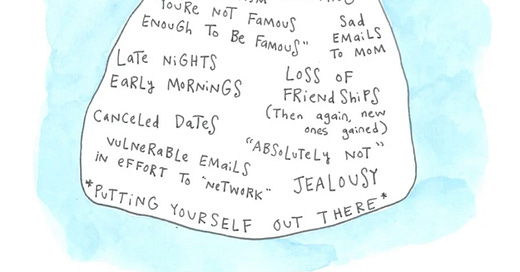 YOU'RE NOT FAMOUS
ENOUGH TO BE FAMOUS"
Sad
EMAiLS
TO MOM
LATE NiGHTS
EARLY MORNiNGS
LOSS OF
FRiENDSHiPS
(Then again, new
ones gained)
CANCELED DATES
"ABSOLUTELY NOT"
VULNERABLE EMAiLS
iN EFFORT TO "NETWORK"
JEALOUSY
*PUTTiNG YOURSELF OUT THERE*